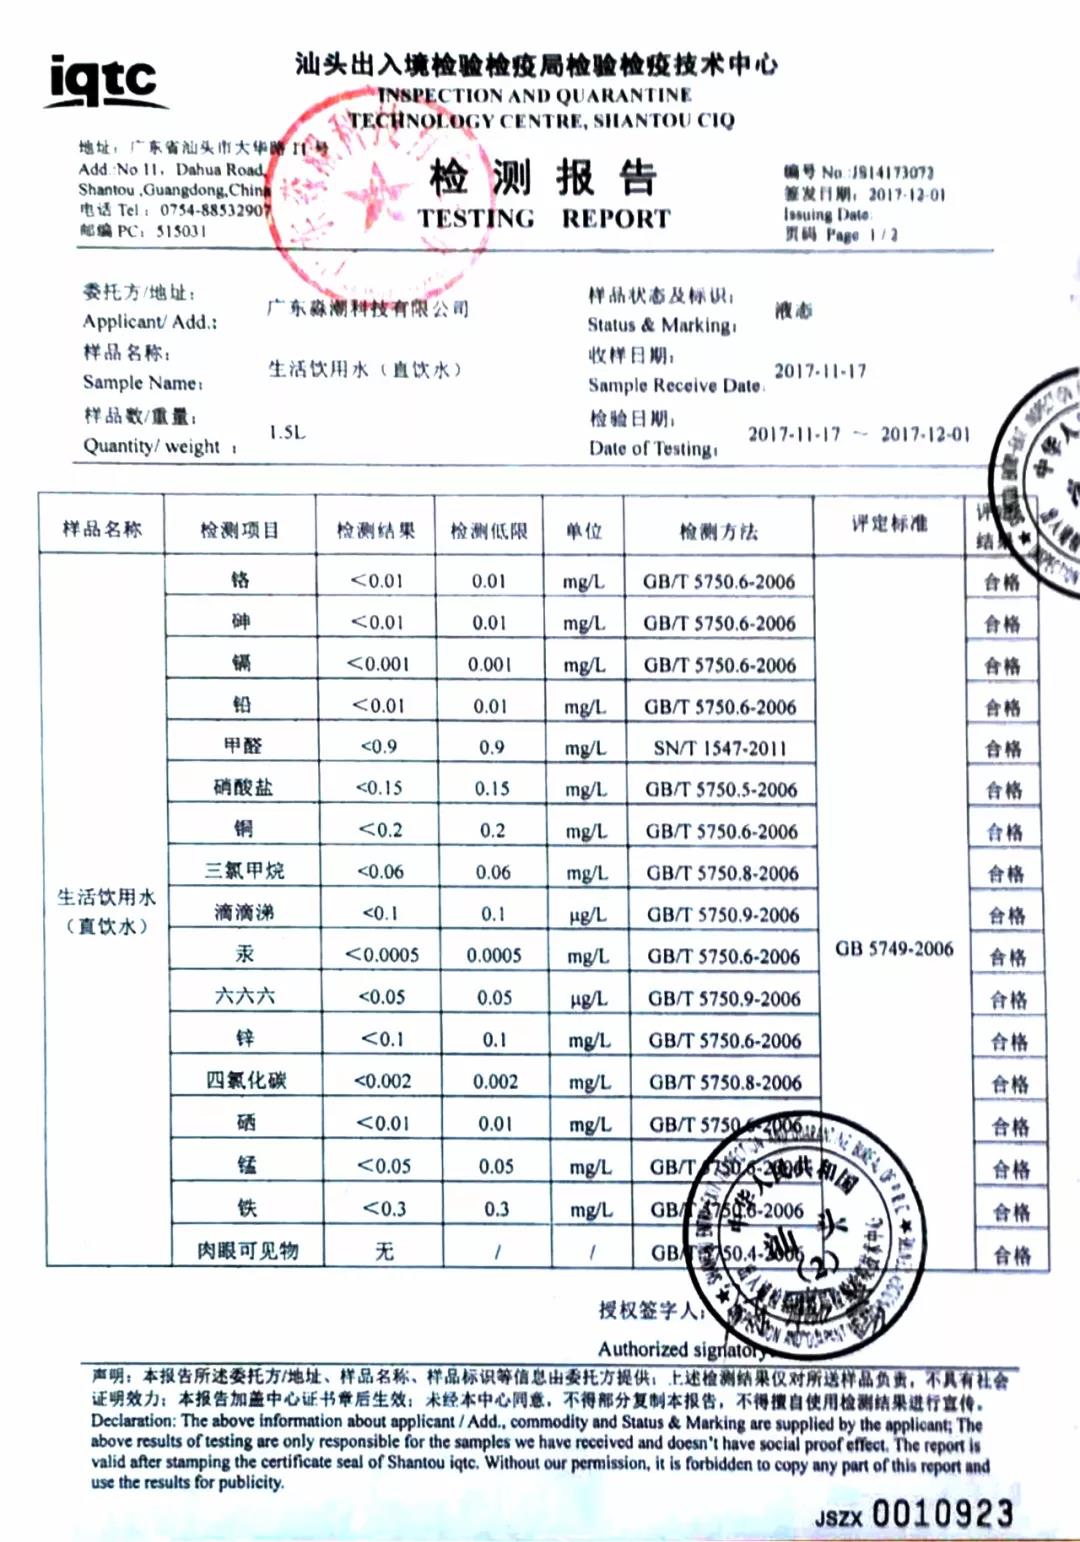 iqtc
汕头出入境检验检疫局检验检疫技术中心
INSPECTION AND QUARANTINE
TECHNOLOGY CENTRE, SHANTOU CIQ
地址：广东省汕头市大华路 11 号
Add.:No 11, Dahua Road,
Shantou ,Guangdong,China
电话 Tel: 0754-88532907
邮编 PC: 515031
检测报告
TESTING REPORT
编号 No.:JS14173073
签发日期：2017-12-01
Issuing Date:
页码 Page 1 / 2
委托方/地址：
Applicant/ Add.:
广东淼潮科技有限公司
样品状态及标识：
Status & Marking:
液态
样品名称：
Sample Name:
生活饮用水（直饮水）
收样日期：
Sample Receive Date:
2017-11-17
样品数/重量：
Quantity/ weight :
1.5L
检验日期：
Date of Testing:
2017-11-17 ～ 2017-12-01
样品名称 检测项目 检测结果 检测低限 单位 检测方法 评定标准 评定结果
生活饮用水
（直饮水）
GB 5749-2006
铬 <0.01 0.01 mg/L GB/T 5750.6-2006 合格
砷 <0.01 0.01 mg/L GB/T 5750.6-2006 合格
镉 <0.001 0.001 mg/L GB/T 5750.6-2006 合格
铅 <0.01 0.01 mg/L GB/T 5750.6-2006 合格
甲醛 <0.9 0.9 mg/L SN/T 1547-2011 合格
硝酸盐 <0.15 0.15 mg/L GB/T 5750.5-2006 合格
铜 <0.2 0.2 mg/L GB/T 5750.6-2006 合格
三氯甲烷 <0.06 0.06 mg/L GB/T 5750.8-2006 合格
滴滴涕 <0.1 0.1 μg/L GB/T 5750.9-2006 合格
汞 <0.0005 0.0005 mg/L GB/T 5750.6-2006 合格
六六六 <0.05 0.05 μg/L GB/T 5750.9-2006 合格
锌 <0.1 0.1 mg/L GB/T 5750.6-2006 合格
四氯化碳 <0.002 0.002 mg/L GB/T 5750.8-2006 合格
硒 <0.01 0.01 mg/L GB/T 5750.6-2006 合格
锰 <0.05 0.05 mg/L GB/T 5750.6-2006 合格
铁 <0.3 0.3 mg/L GB/T 5750.6-2006 合格
肉眼可见物 无 / / GB/T 5750.4-2006 合格
中华人民共和国
汕头
(2)
授权签字人：
Authorized signatory:
声明：本报告所述委托方/地址、样品名称、样品标识等信息由委托方提供；上述检测结果仅对所送样品负责，不具有社会
证明效力；本报告加盖中心证书章后生效；未经本中心同意，不得部分复制本报告，不得擅自使用检测结果进行宣传。
Declaration: The above information about applicant / Add., commodity and Status & Marking are supplied by the applicant; The
above results of testing are only responsible for the samples we have received and doesn't have social proof effect. The report is
valid after stamping the certificate seal of Shantou iqtc. Without our permission, it is forbidden to copy any part of this report and
use the results for publicity.
JSZX 0010923